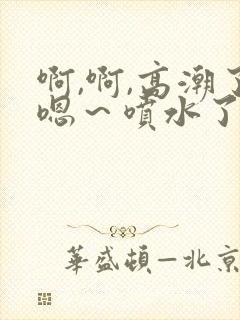 啊,啊,高潮了
嗯～噴水了
華盛頓—北京